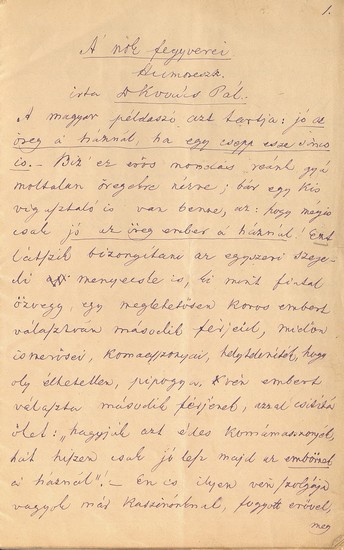 1.
A nők fegyverei
Humoreszk.
írta Dr Kovács Pál.
A magyar példaszó azt tartja: jó az
öreg a háznál, ha egy csepp esze sincs
is. – Biz' ez erős mondás reánk gyá
moltalan öregekre nézve; bár egy kis
vigasztaló is van benne, az: hogy mégis
csak jó az öreg ember a háznál! Ezt
látszik bizonyítani az egyszeri szege-
di menyecske is, ki mint fiatal
özvegy, egy meglehetősen koros embert
választván második férjéül, midőn
ismerősei, komaasszonyai, helytelenítették, hogy
oly élhetetlen, pipogya, vén embert
választa második férjének, azzal csitítá
őket: „hagyják azt édes komámasszonyék,
hát hiszen csak jó lesz majd az embörnek
a háznál"! – Én is ilyen vén szolgája
vagyok már kaszinónknak, fogyott erővel,
meg